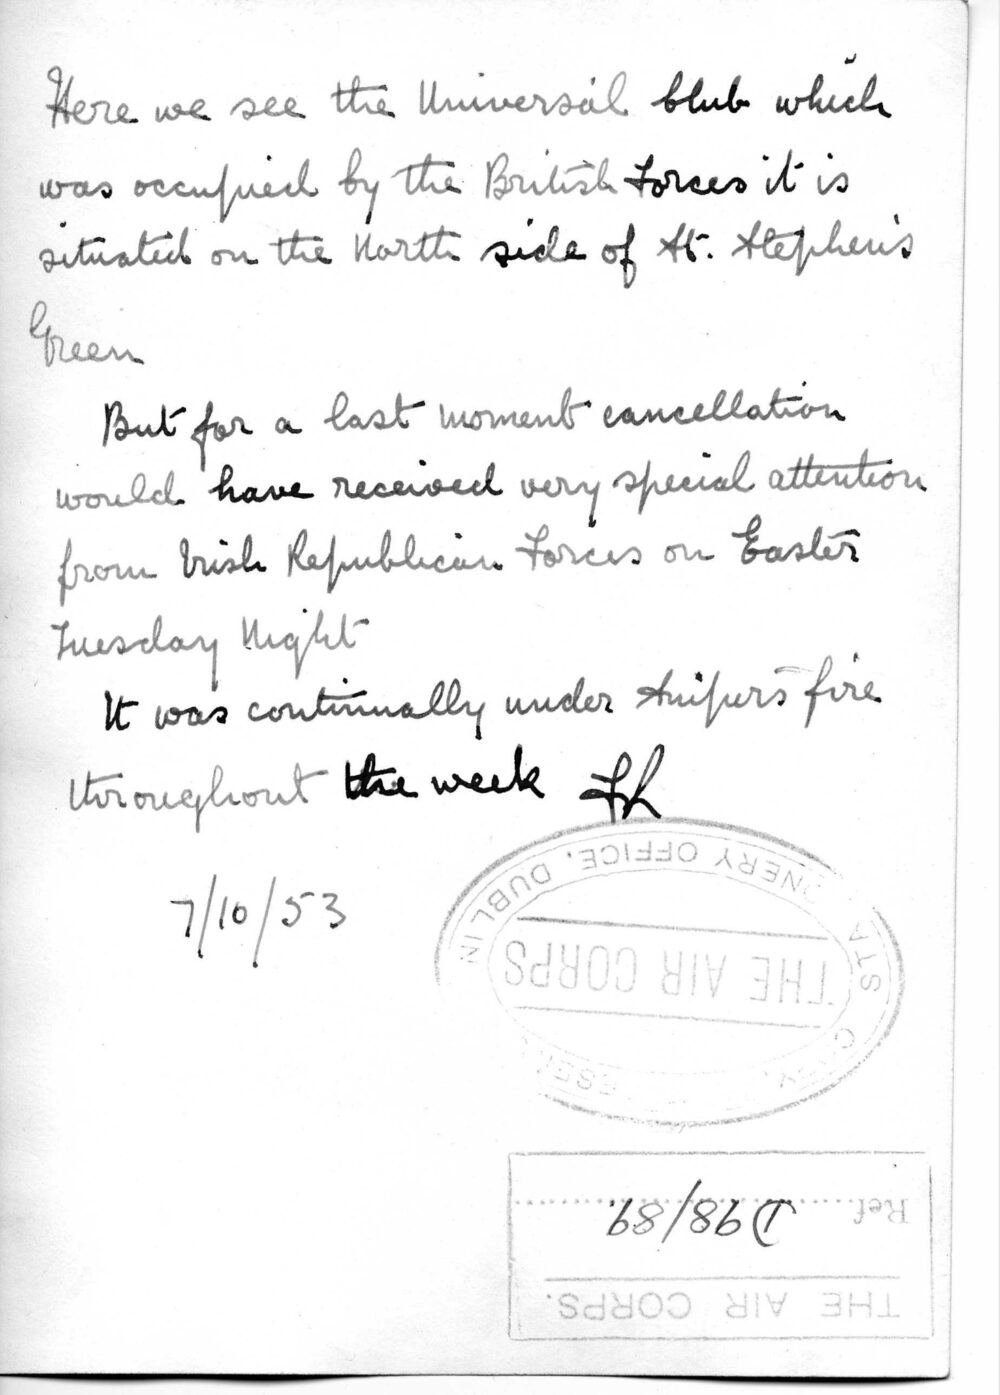 Here we see the Universal Club which
was occupied by the British Forces it is
situated on the North side of St. Stephen's
Green
But for a last moment cancellation
would have received very special attention
from Irish Republican Forces on Easter
Tuesday Night
It was continually under Snipers fire
throughout the week
7/10/53
STA NERY OFFICE, DUBLIN
THE AIR CORPS
Ref. D98/89.
THE AIR CORPS.